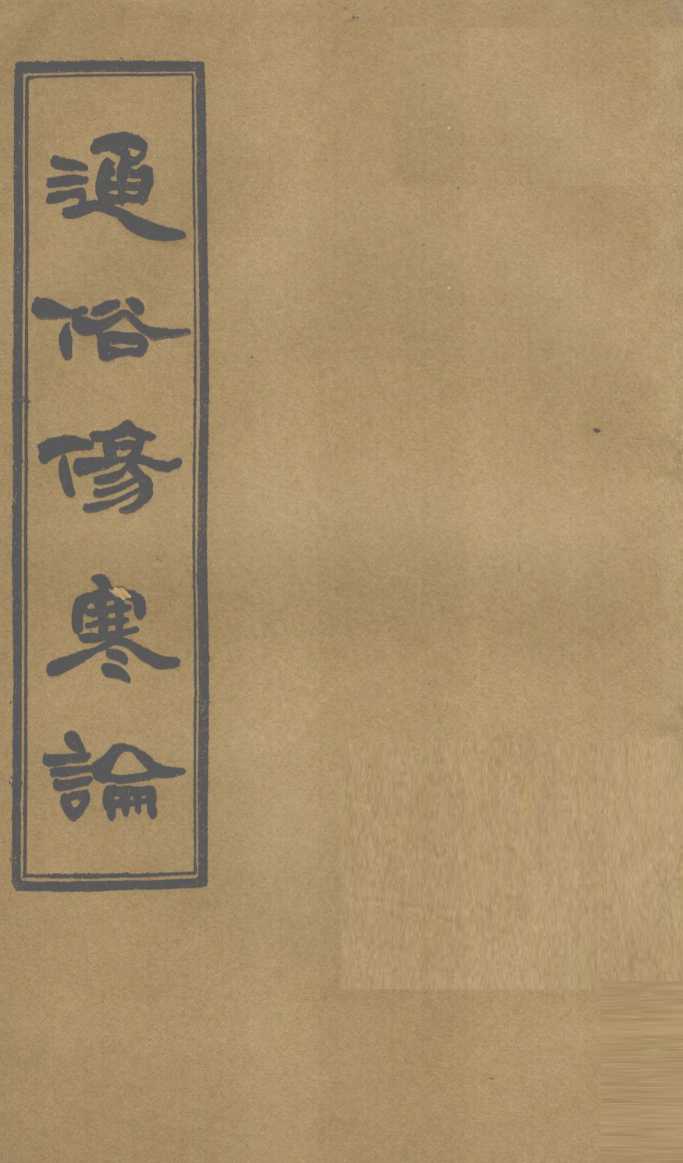 通俗傷寒論